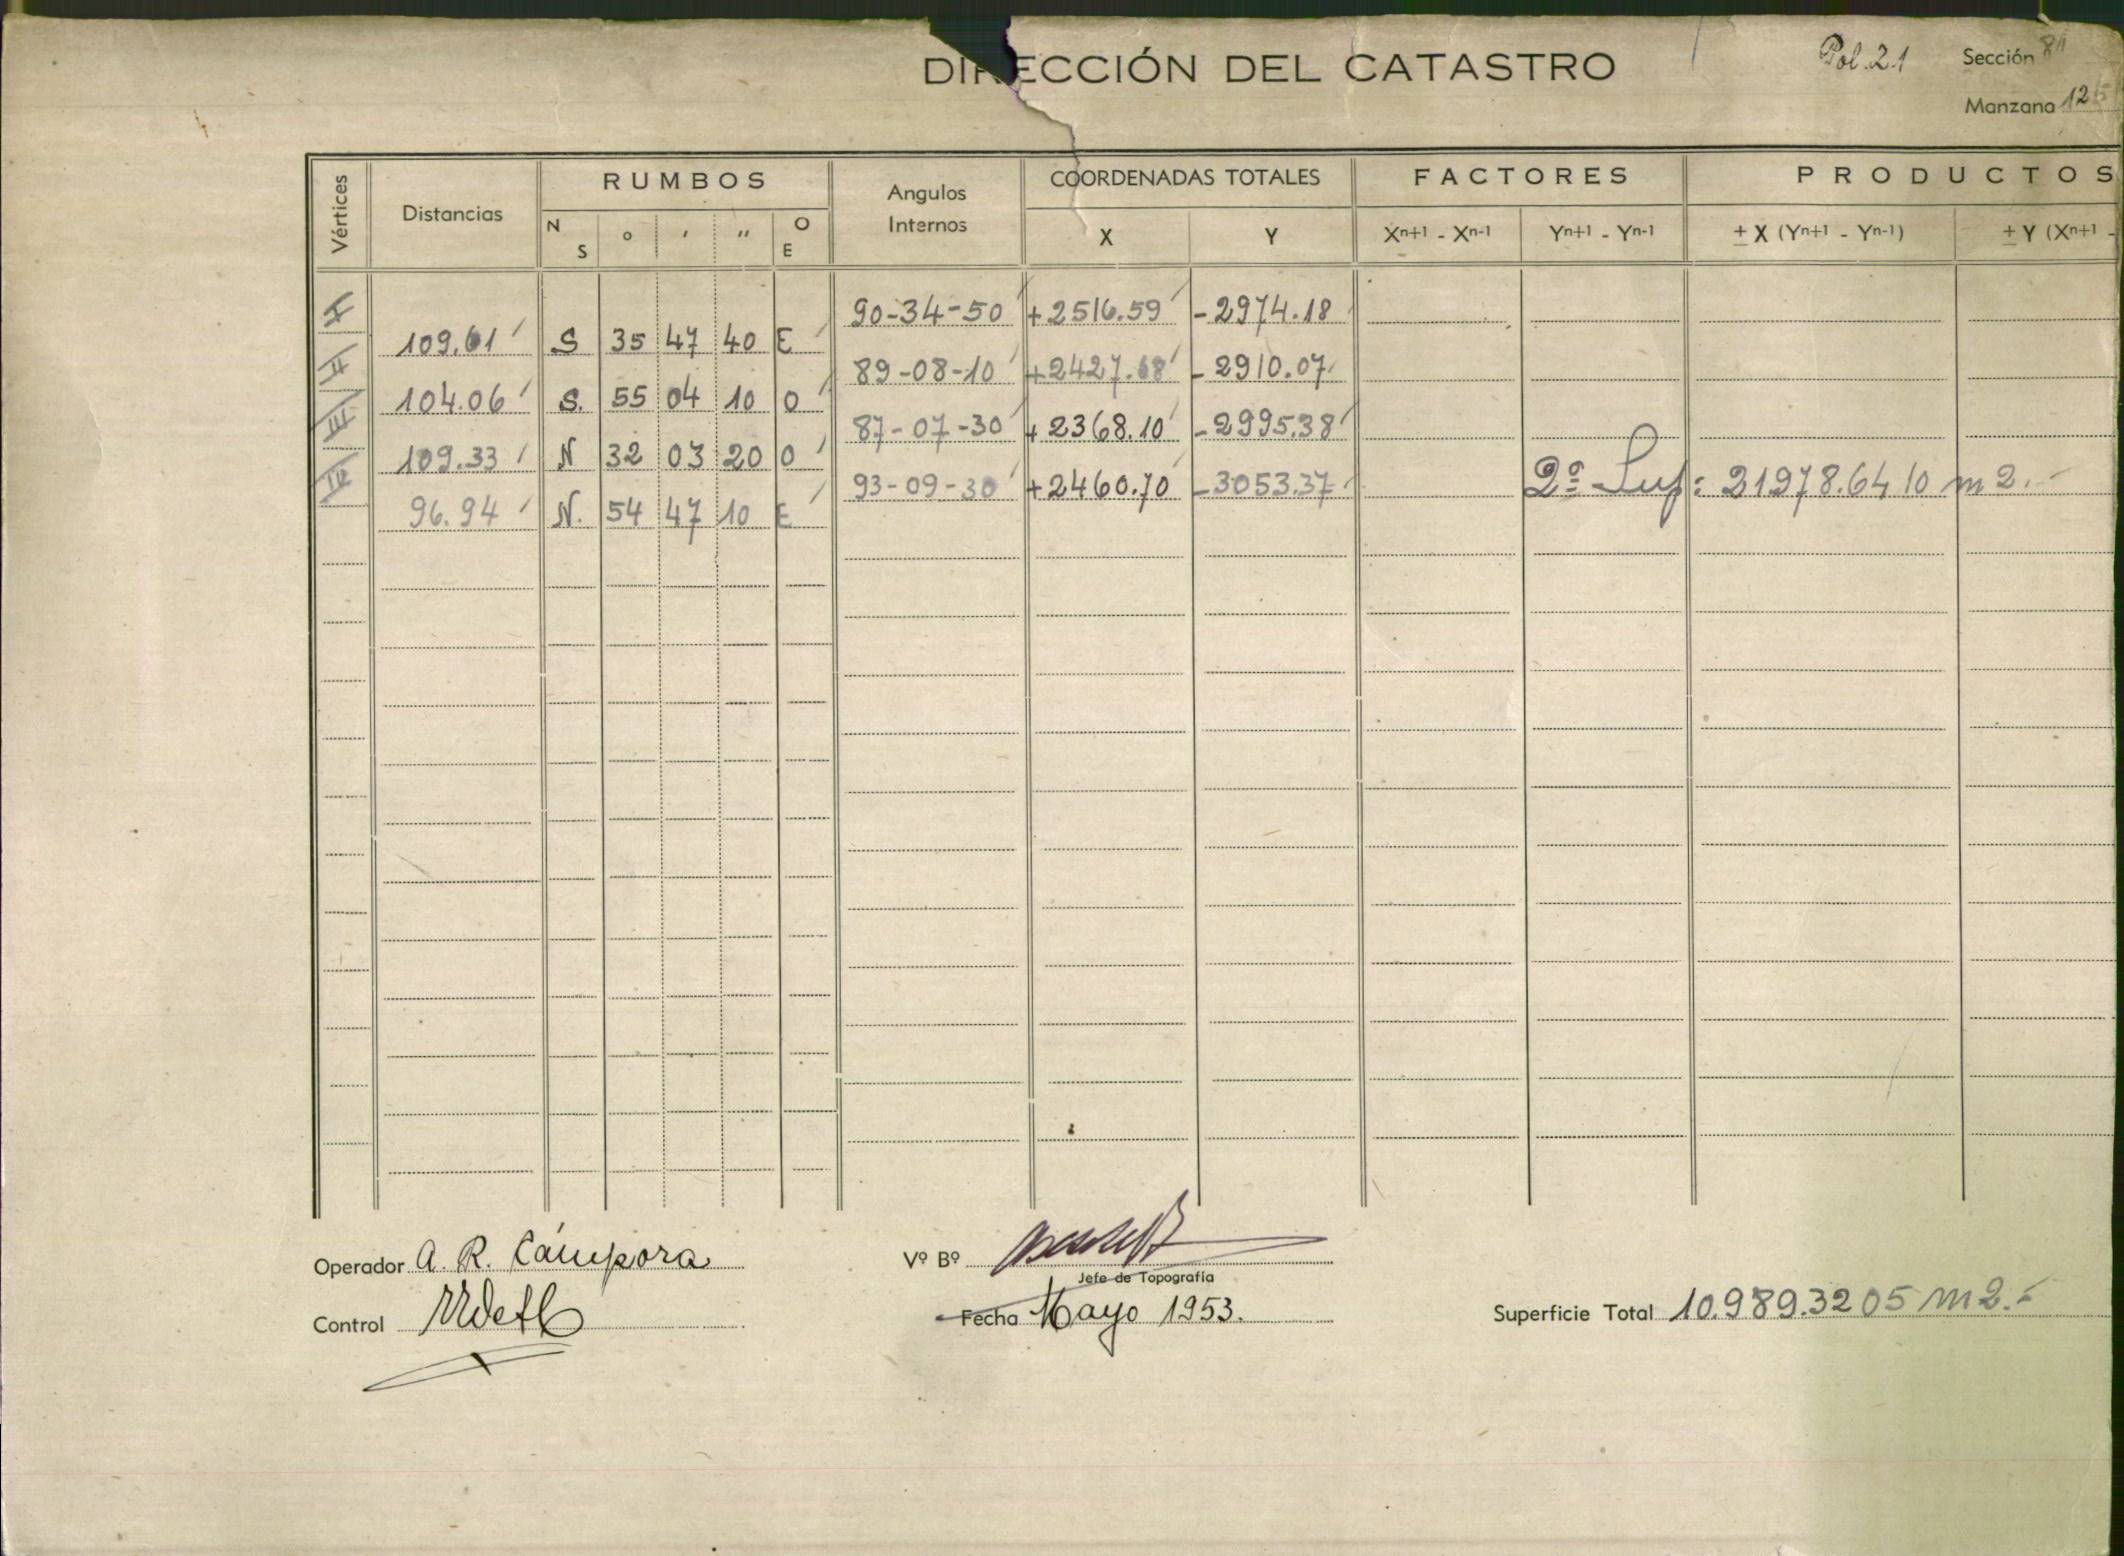 DIRECCIÓN DEL CATASTRO
Pol. 21
Sección 8ª
Manzana 12
Vértices
Distancias
RUMBOS
N S
o
'
"
O E
Angulos Internos
COORDENADAS TOTALES
X
Y
FACTORES
Xn+1 - Xn-1
Yn+1 - Yn-1
PRODUCTOS
± X (Yn+1 - Yn-1)
± Y (Xn+1 -
I 90-34-50 +2516.59 -2974.18
109.61 S 35 47 40 E
II 89-08-10 +2427.68 -2910.07
104.06 S. 55 04 10 O
III 87-07-30 +2368.10 -2995.38
109.33 N 32 03 20 O
IV 93-09-30 +2460.70 -3053.37 2ª Sup: 21.978.6410 m2.-
96.94 N. 54 47 10 E
Operador A. R. Cámpora
Vº Bº
Jefe de Topografía
Control
Fecha Mayo 1953.
Superficie Total 10.989.3205 m2.-